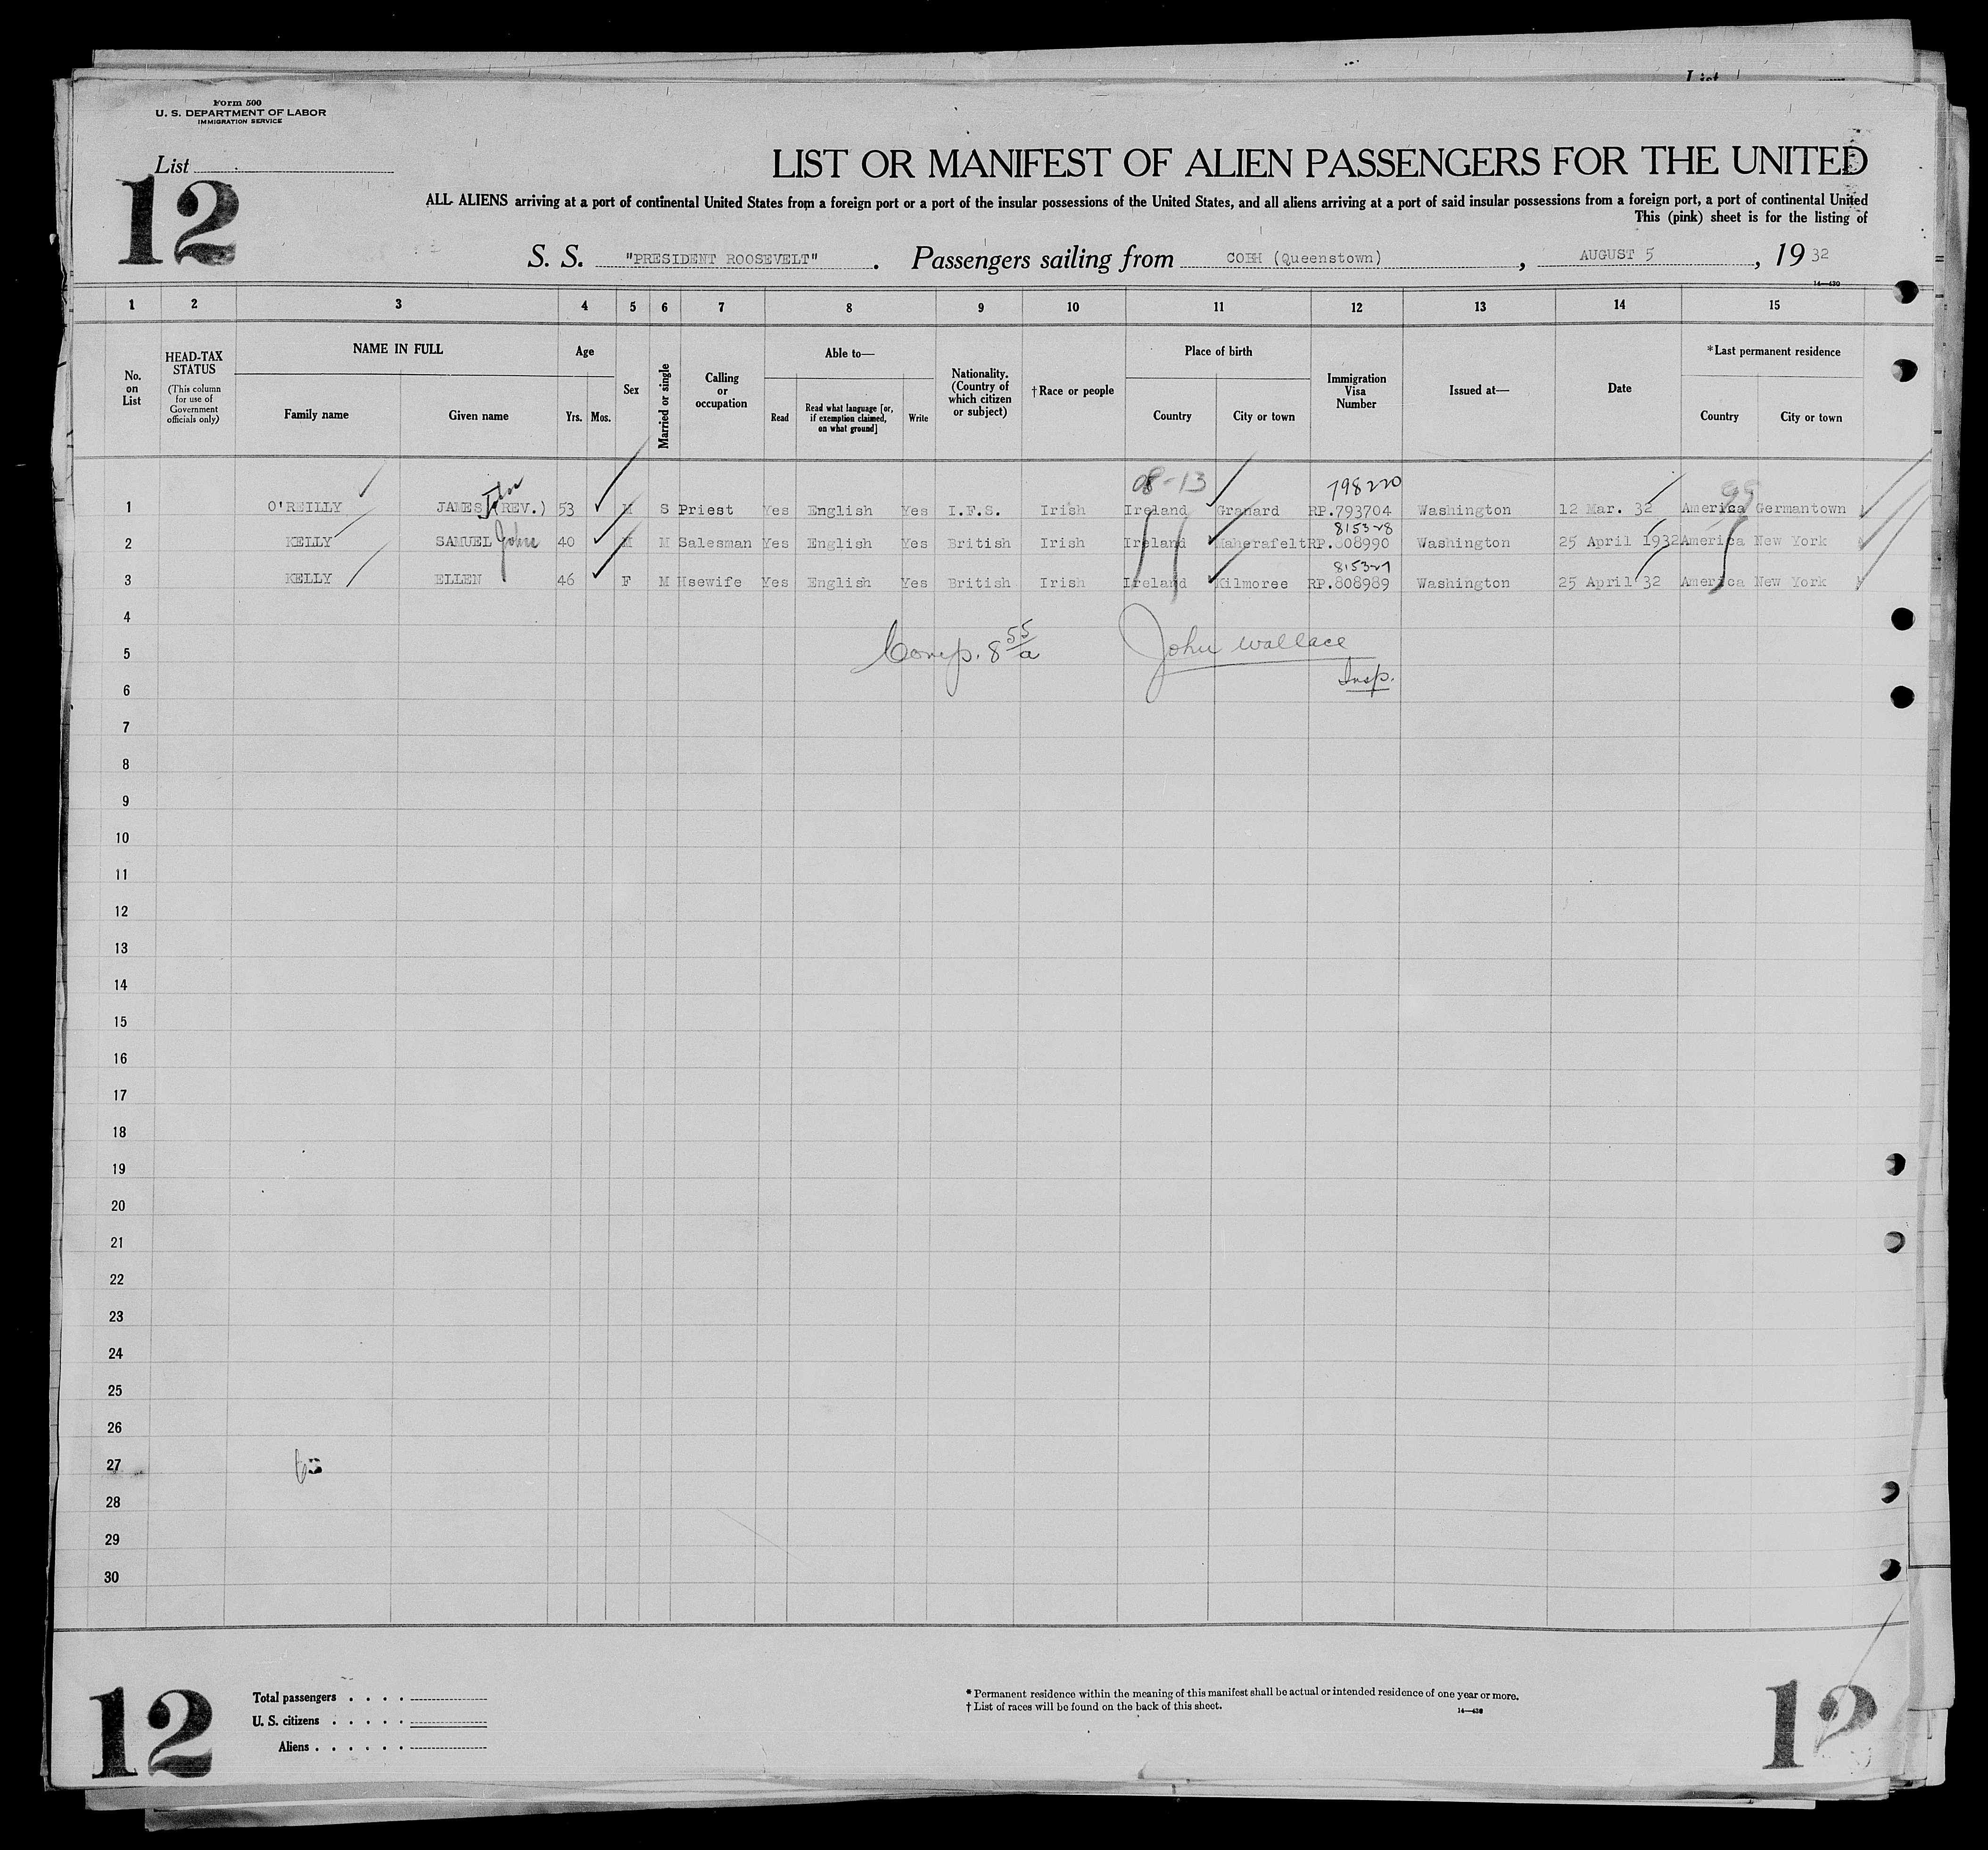 List
Form 500
U. S. DEPARTMENT OF LABOR
IMMIGRATION SERVICE
List
12
LIST OR MANIFEST OF ALIEN PASSENGERS FOR THE UNITED
ALL ALIENS arriving at a port of continental United States from a foreign port or a port of the insular possessions of the United States, and all aliens arriving at a port of said insular possessions from a foreign port, a port of continental United
This (pink) sheet is for the listing of
S. S. "PRESIDENT ROOSEVELT". Passengers sailing from COBH (Queenstown), AUGUST 5, 1932
14—430
1 2 3 4 5 6 7 8 9 10 11 12 13 14 15
No. on List
HEAD-TAX STATUS
(This column for use of Government officials only)
NAME IN FULL
Family name Given name
Age
Yrs. Mos.
Sex
Married or single
Calling or occupation
Able to—
Read
Read what language [or, if exemption claimed, on what ground]
Write
Nationality. (Country of which citizen or subject)
†Race or people
Place of birth
Country City or town
Immigration Visa Number
Issued at—
Date
*Last permanent residence
Country City or town
John 08-13 798220 99
1 O'REILLY JAMES (REV.) 53 M S Priest Yes English Yes I.F.S. Irish Ireland Granard RP.793704 Washington 12 Mar. 32 America Germantown
815328
2 KELLY SAMUEL John 40 M M Salesman Yes English Yes British Irish Ireland Maherafelt RP.808990 Washington 25 April 1932 America New York
815327
3 KELLY ELLEN 46 F M Hsewife Yes English Yes British Irish Ireland Kilmoree RP.808989 Washington 25 April 32 America New York
4
5 Comp. 8 55/a John Wallace
6 Insp.
7
8
9
10
11
12
13
14
15
16
17
18
19
20
21
22
23
24
25
26
27
28
29
30
12
Total passengers . . . .
U. S. citizens . . . . .
Aliens . . . . . .
* Permanent residence within the meaning of this manifest shall be actual or intended residence of one year or more.
† List of races will be found on the back of this sheet.
14—430
12